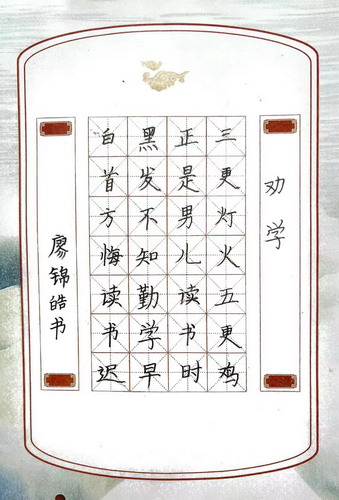 劝学
三更灯火五更鸡
正是男儿读书时
黑发不知勤学早
白首方悔读书迟
廖锦皓书